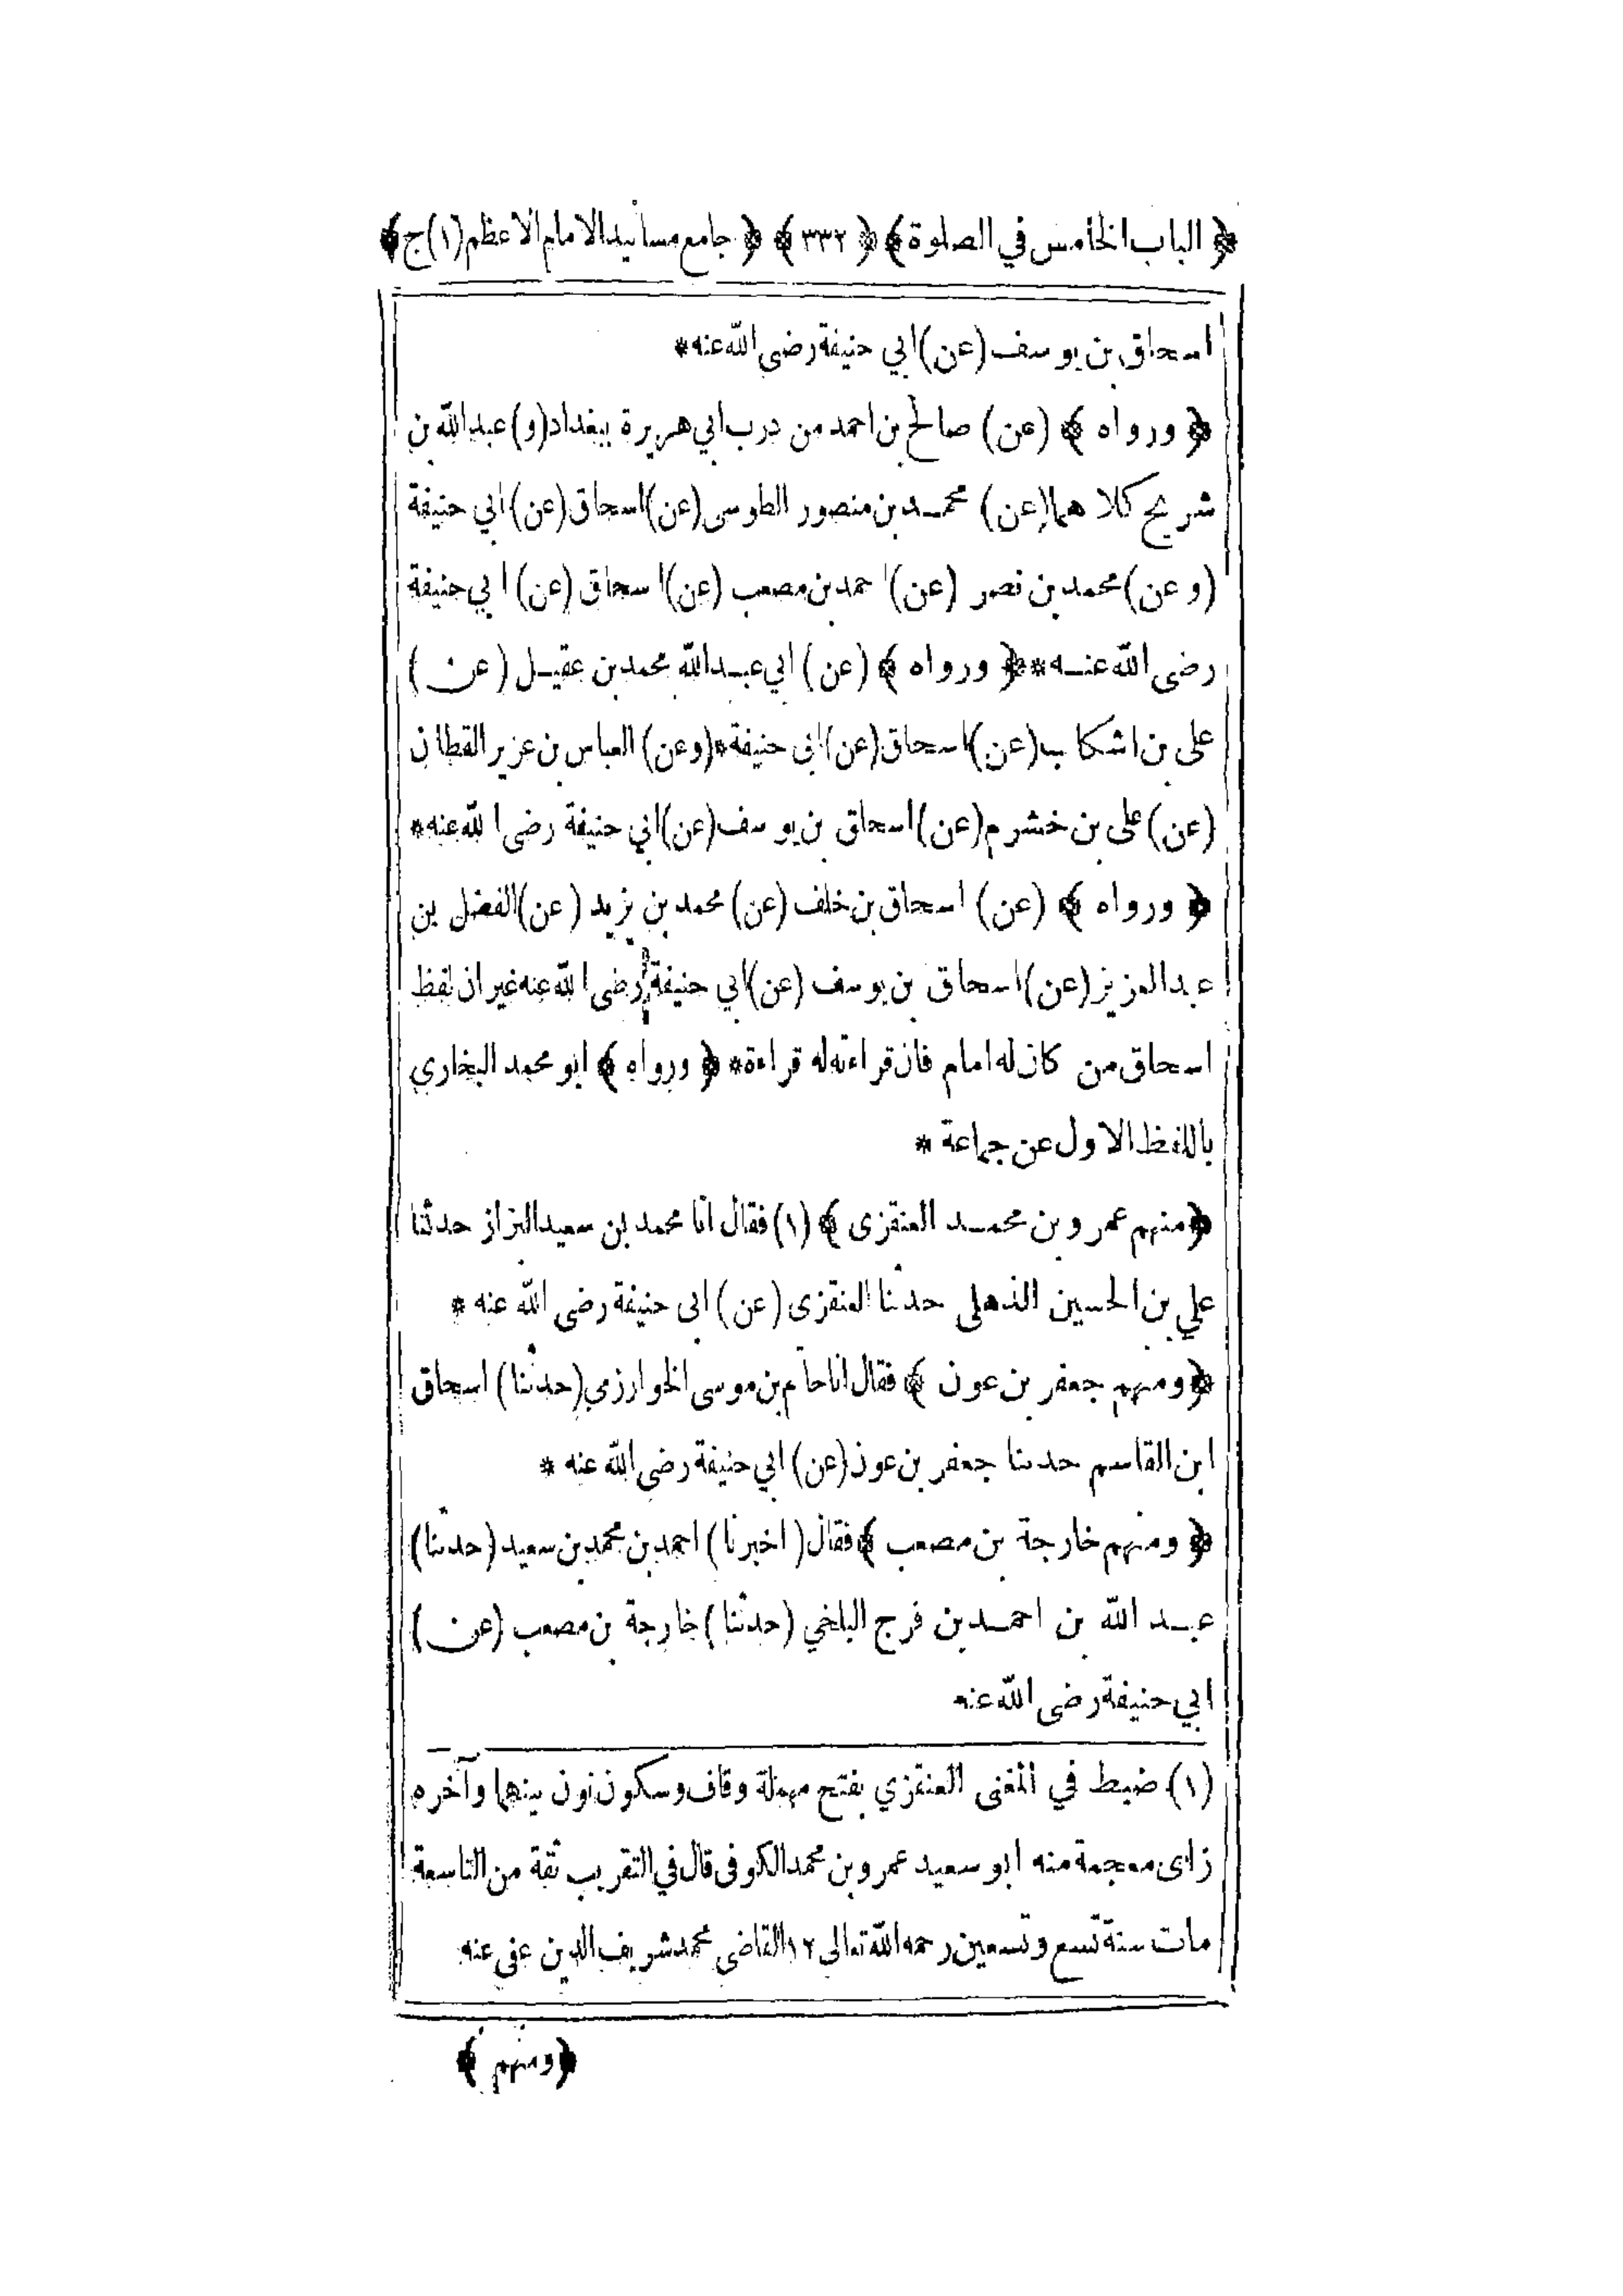 ﴿ الباب الخامس في الصلوة ﴾ ﴿ ٣٣٢ ﴾ ﴿ جامع مسانيد الامام الاعظم (١) ج ﴾
اسحاق بن يوسف (عن) ابي حنيفة رضى الله عنه *
﴿ ورواه ﴾ (عن) صالح بن احمد من درب ابي هريرة ببغداد (و) عبدالله بن
شريح كلا هما (عن) محمد بن منصور الطوسى (عن) اسحاق (عن) ابي حنيفة
(و عن) محمد بن نصر (عن) احمد بن مصعب (عن) اسحاق (عن) ابي حنيفة
رضى الله عنه * ﴿ ورواه ﴾ (عن) ابي عبدالله محمد بن عقيل (عن)
على بن اشكاب (عن) اسحاق (عن) ابي حنيفة * (وعن) العباس بن عزير القطان
(عن) على بن خشرم (عن) اسحاق بن يوسف (عن) ابي حنيفة رضى الله عنه *
﴿ ورواه ﴾ (عن) اسحاق بن خلف (عن) محمد بن يزيد (عن) الفضل بن
عبدالعزيز (عن) اسحاق بن يوسف (عن) ابي حنيفة رضى الله عنه غير ان لفظ
اسحاق من كان له امام فان قراءته له قراءة * ﴿ ورواه ﴾ ابو محمد البخاري
باللفظ الاول عن جماعة *
﴿ منهم عمرو بن محمد العنقزى ﴾ (١) فقال انا محمد بن سعيد البزاز حدثنا
علي بن الحسين الذهلى حدثنا العنقزى (عن) ابى حنيفة رضى الله عنه *
﴿ ومنهم جعفر بن عون ﴾ فقال انا حاتم بن موسى الخوارزمي (حدثنا) اسحاق
ابن القاسم حدثنا جعفر بن عون (عن) ابي حنيفة رضى الله عنه *
﴿ ومنهم خارجة بن مصعب ﴾ فقال (اخبرنا) احمد بن محمد بن سعيد (حدثنا)
عبد الله بن احمد بن فرج البلخي (حدثنا) خارجة بن مصعب (عن)
ابي حنيفة رضى الله عنه
(١) ضبط في المغنى العنقزي بفتح مهملة وقاف وسكون نون بينهما وآخره
زاى معجمة منه ابو سعيد عمرو بن محمد الكوفى قال في التقريب ثقة من التاسعة
مات سنة تسع وتسعين رحمه الله تعالى ١٢ القاضى محمد شريف الدين عفى عنه
﴿ ومنهم ﴾